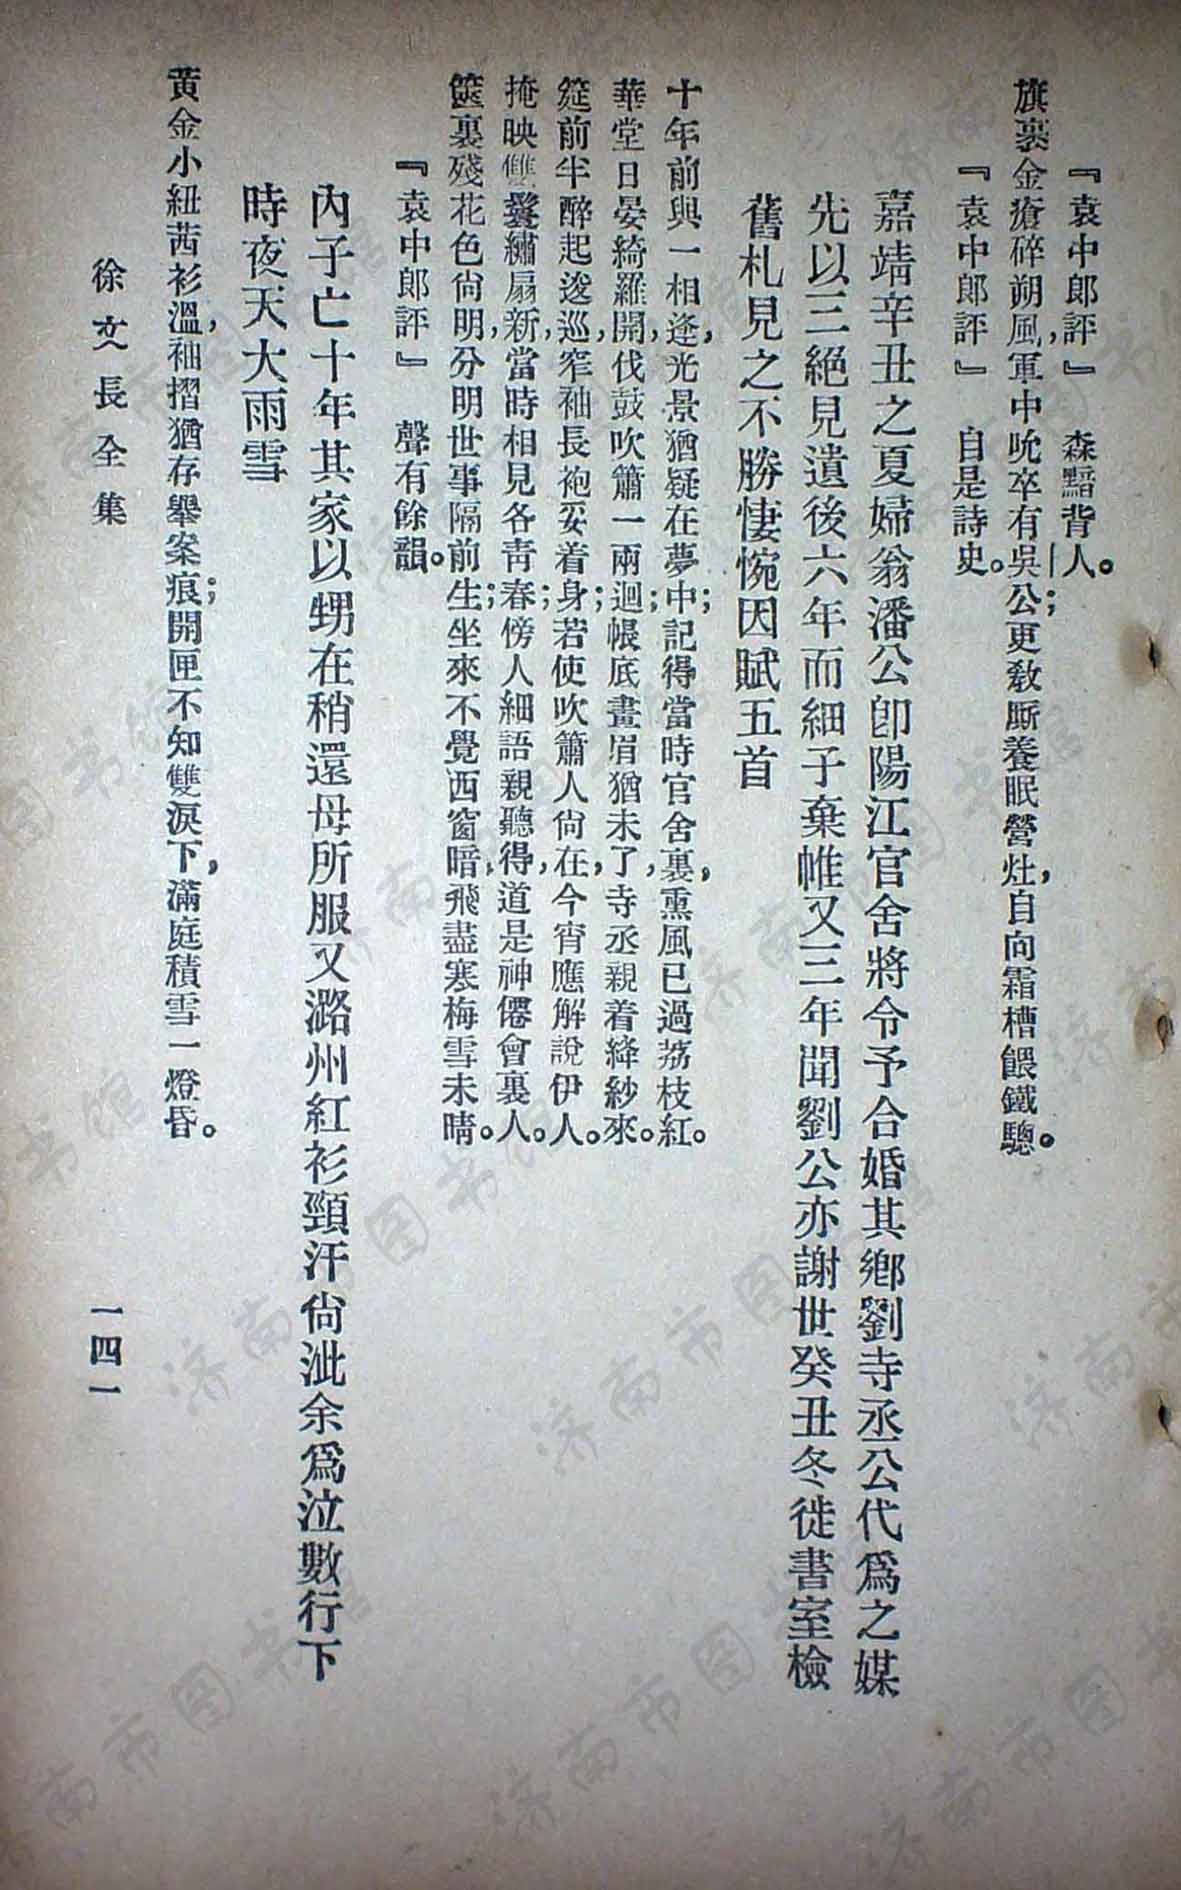 『袁中郎評』　森黯背人。
旗裹金瘡碎朔風，軍中吮卒有吳公；更敎厮養眠營灶，自向霜槽餵鐵驄。
『袁中郎評』　自是詩史。
嘉靖辛丑之夏婦翁潘公卽陽江官舍將令予合婚其鄉劉寺丞公代爲之媒
先以三絕見遺後六年而細子棄帷又三年聞劉公亦謝世癸丑冬徙書室檢
舊札見之不勝悽惋因賦五首
十年前與一相逢，光景猶疑在夢中；記得當時官舍裏，熏風已過荔枝紅。
華堂日晏綺羅開，伐鼓吹簫一兩迴；帳底畫眉猶未了，寺丞親着絳紗來。
筵前半醉起逡巡，窄袖長袍妥着身；若使吹簫人尙在，今宵應解說伊人。
掩映雙鬟繡扇新，當時相見各靑春；傍人細語親聽得，道是神僊會裏人。
篋裏殘花色尙明，分明世事隔前生；坐來不覺西窗暗，飛盡寒梅雪未晴。
『袁中郎評』　聲有餘韻。
內子亡十年其家以甥在稍還母所服又潞州紅衫頸汗尙泚余爲泣數行下
時夜天大雨雪
黃金小紐茜衫溫，袖摺猶存舉案痕；開匣不知雙淚下，滿庭積雪一燈昏。
徐文長全集
一四一
济南市图书馆